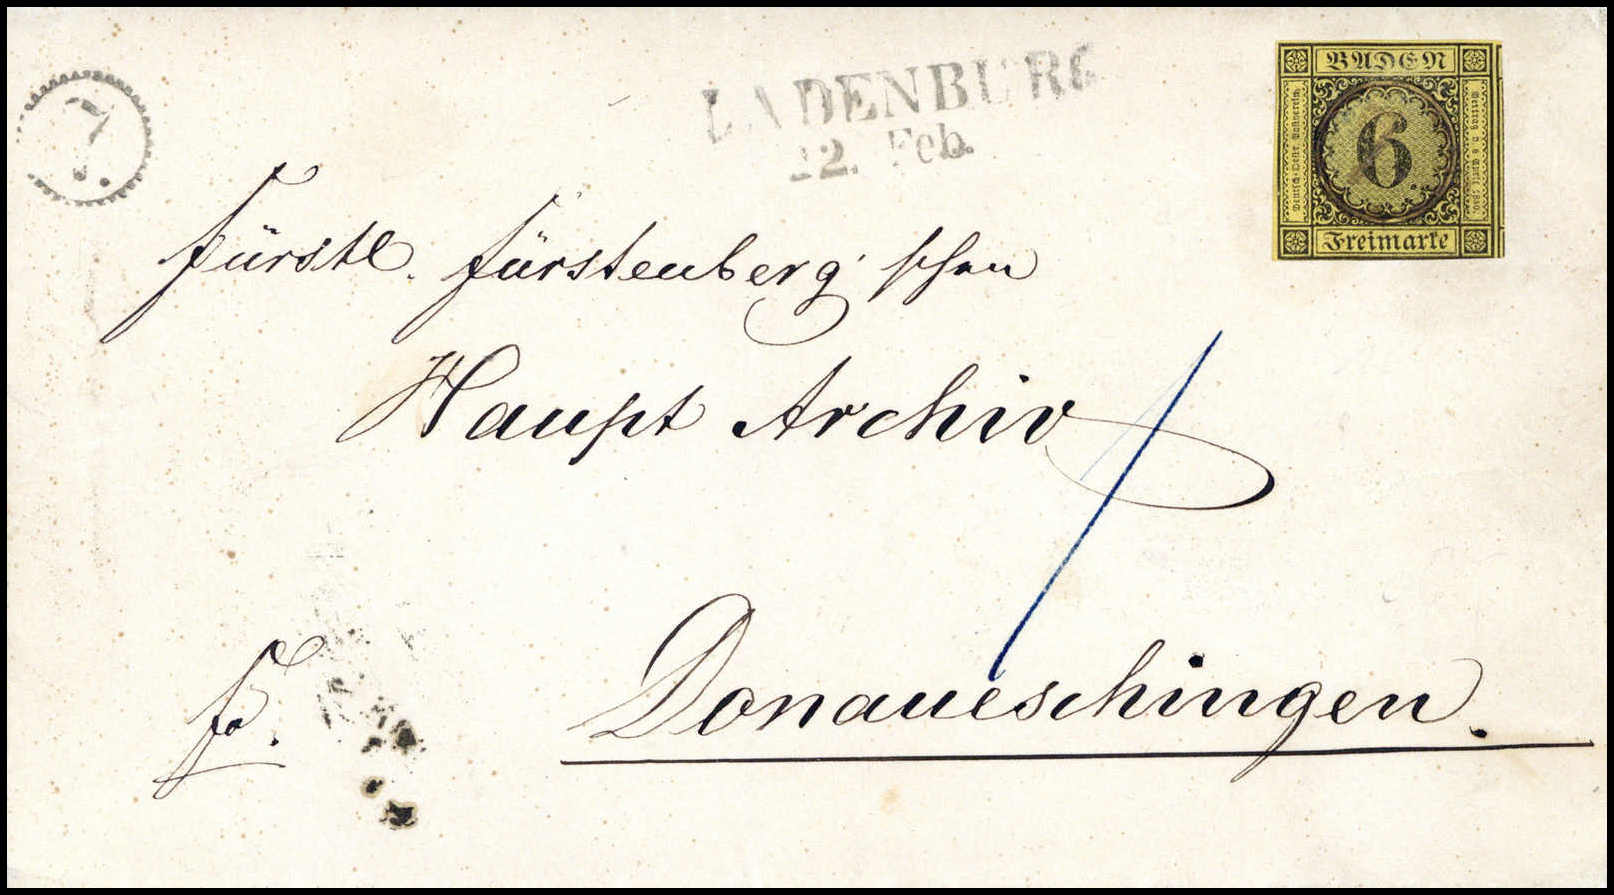 7.
LADENBURG
22. Feb.
BADEN
Deutsch-Oestr. Postverein.
6
Vertrag v. 6 April 1850.
Freimarke
Fürstl. Fürstenberg'schen
Haupt Archiv
fo.
Donaueschingen.